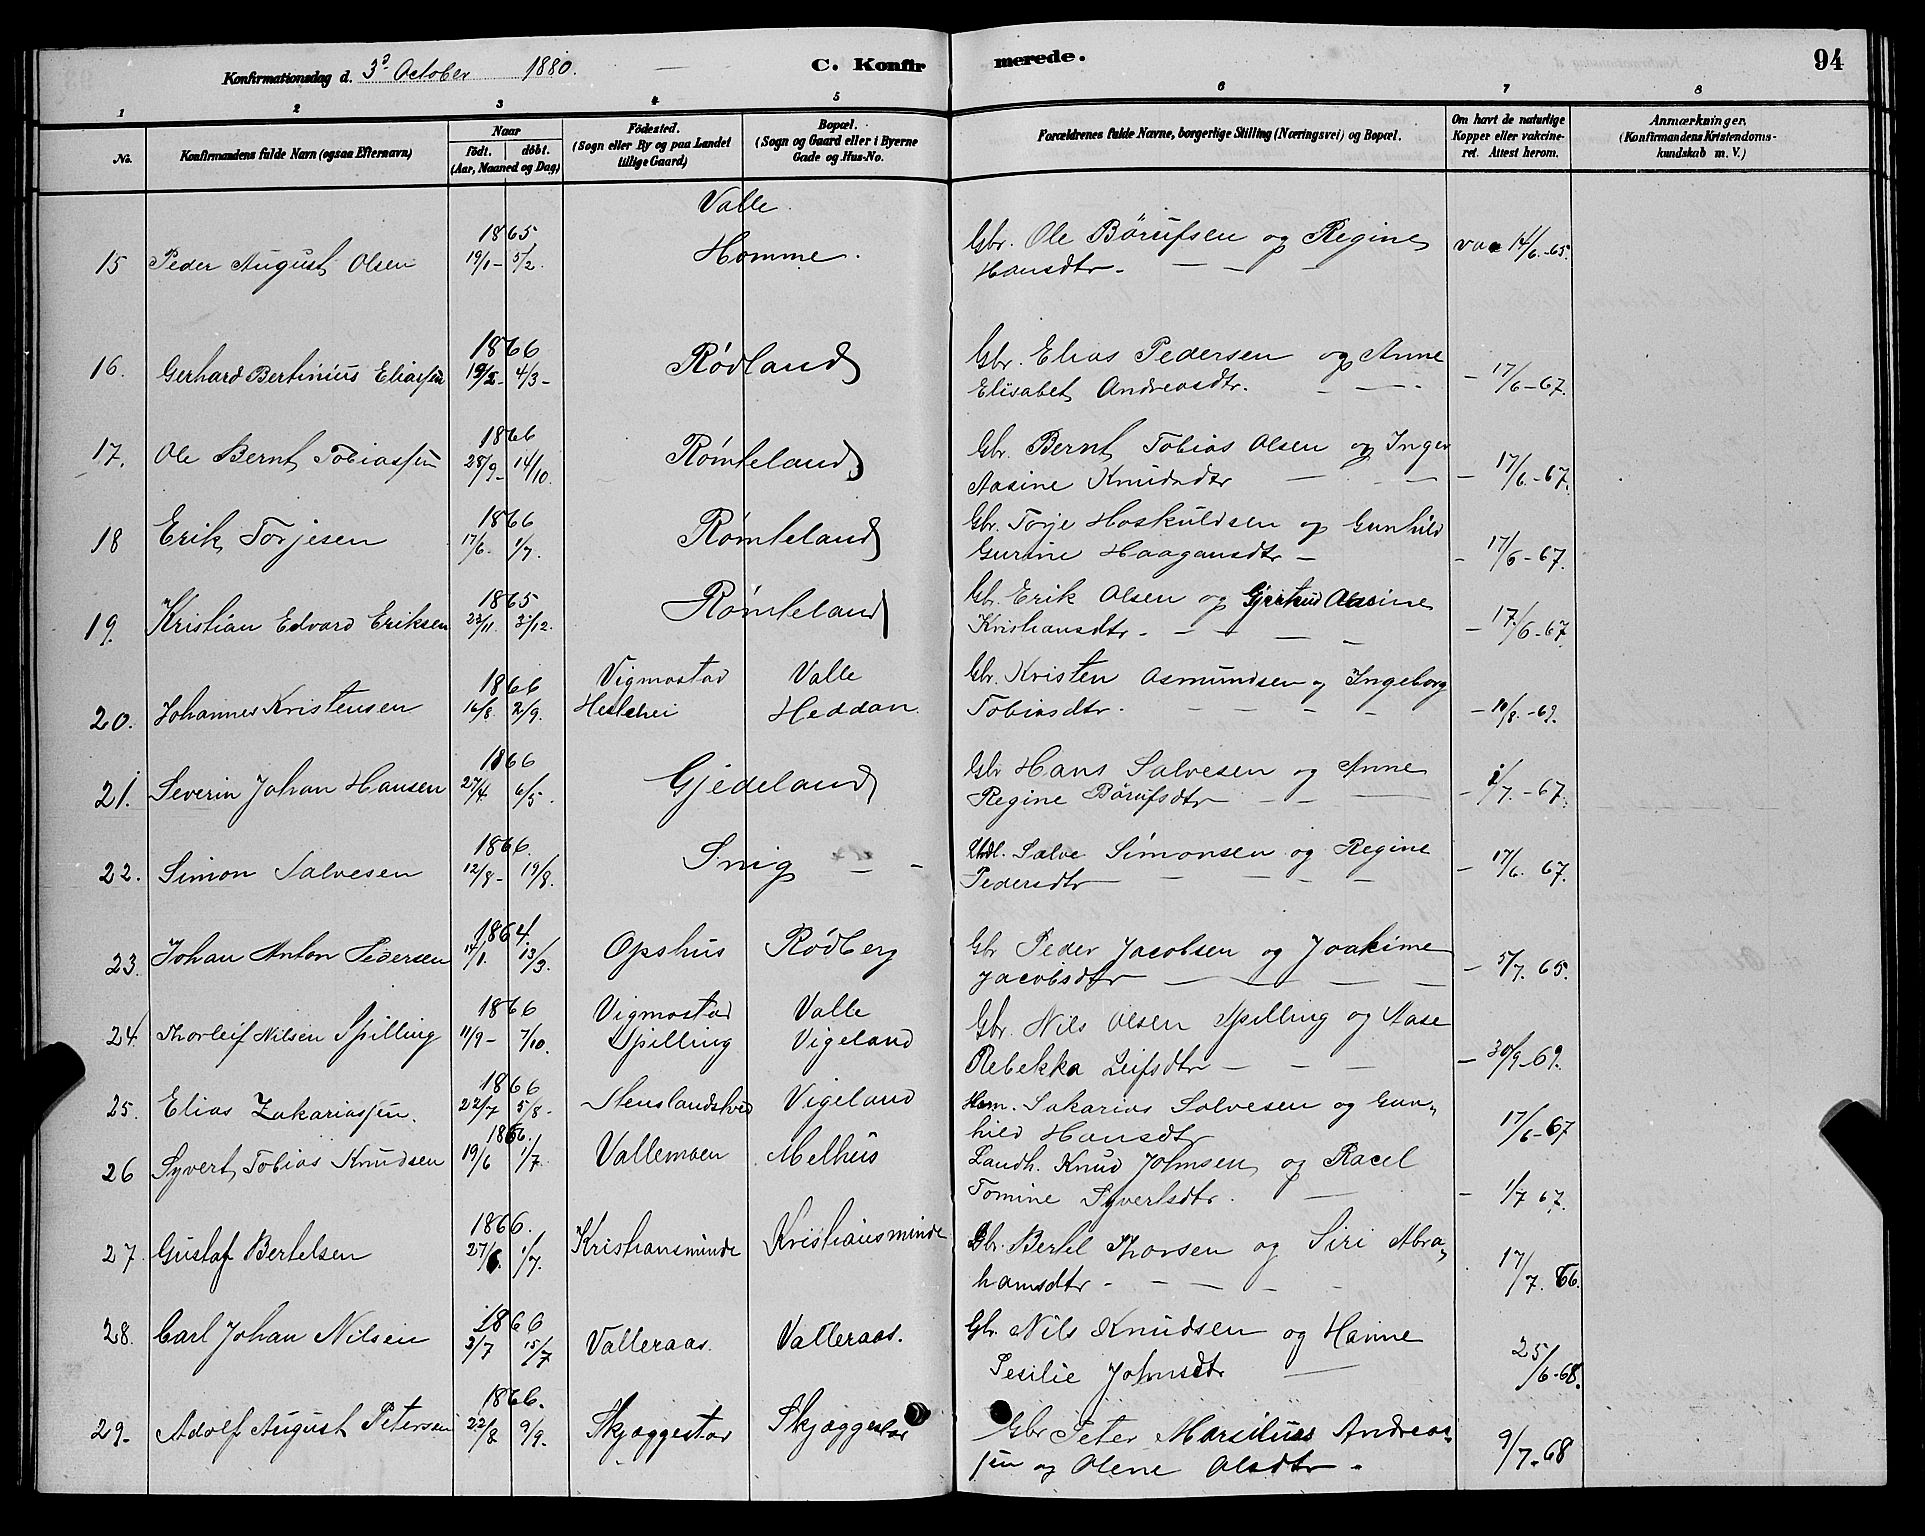 Konfirmationsdag d. 3d October 1880. C. Konfirmerede. 94
1 2 3 4 5 6 7 8
No. Konfirmandens fulde Navn (ogsaa Efternavn) Naar födt. döbt. (Aar, Maaned og Dag) Födested. (Sogn eller By og paa Landet tillige Gaard) Bopæl. (Sogn og Gaard eller i Byerne Gade og Hus-No. Forældrenes fulde Navne, borgerlige Stilling (Næringsvei) og Bopæl. Om havt de naturlige Kopper eller vakcineret. Attest herom. Anmærkninger. (Konfirmandens Kristendomskundskab m. V.)
Valle
15 Peder August Olsen 1865 19/1 - 5/2. Homme. Gbr. Ole Börufsen og Regine
Hansdtr. vac 14/6 -65.
16. Gerhard Bertinius Eliassen 1866 19/2 - 4/3 - Rödland Gbr. Elias Pedersen og Anne
Elisabet Andreasdtr. - 17/6 -67.
17. Ole Bernt Tobiassen 1866 28/9 - 14/10. Römteland Gbr. Bernt Tobias Olsen og Inger
Aasine Knudsdtr - 17/6 -67.
18 Erik Torjesen 1866 17/6. 1/7. Römteland Gbr. Torje Hoskuldsen og Gunhild
Gurine Haagansdtr - 17/6 -67.
19. Kristian Edvard Eriksen 1865 23/11. 3/12. Römteland Gb. Erik Olsen og Gjertrud Alasine
Kristiansdtr. - 17/6 -67
20. Johannes Kristensen 1866 16/8. 2/9. Vigmostad Heslehei Valle Heddan Gbr. Kristen Asmundsen og Ingeborg
Tobiasdtr. - 10/8. -69.
21. Severin Johan Hansen 1866 27/4. 6/5. Gjedeland Gbr Hans Salvesen og Anne
Regine Börufsdtr - 1/7. -67.
22. Simon Salvesen 1866. 12/8 - 19/8. Snig Salve Simonsen og Regine
Pedersdtr - 17/6. 67.
23. Johan Anton Pedersen 1864 14/1. 13/3. Opshus Rödberg Gbr Peder Jacobsen og Joakime
Jacobsdtr - 5/7. 65.
24. Thorleif Nilsen Spilling 1866 11/9 - 7/10. Vigmostad Spilling Valle Vigeland Gbr. Nils Olsen Spilling og Aase
Rebekka Leifsdtr - 30/9 -69.
25. Elias Zakariassen. 1866 22/7 5/8. Stenslandskved Vigeland Hsm. Sakarias Solvesen og Gun-
hild Hansdtr 17/6 -67
26 Syvert Tobias Knudsen 1866. 19/6 1/7. Vallemoen Melhus Landh. Knud Johnsen og Racel
Tomine Syvertsdtr. - 1/7 67.
27. Gustaf Bertelsen 1866. 27/6. 1/7. Kristiansminde Kristiansminde Gbr. Bertel Thorsen og Siri Abra-
hamsdtr. 17/7. 66.
28. Carl Johan Nilsen 1866 3/7 15/7 Valleraas. Valleraas. Gbr. Nils Knudsen og Hanne
Sesilie Johnsdtr 25/6 -68.
29. Adolf August Petersen 1866. 22/8 9/9. Skjæggestad Skjæggestad Gbr Peter Marsilius Andreas-
sen og Olene Olsdtr. 9/7 -68